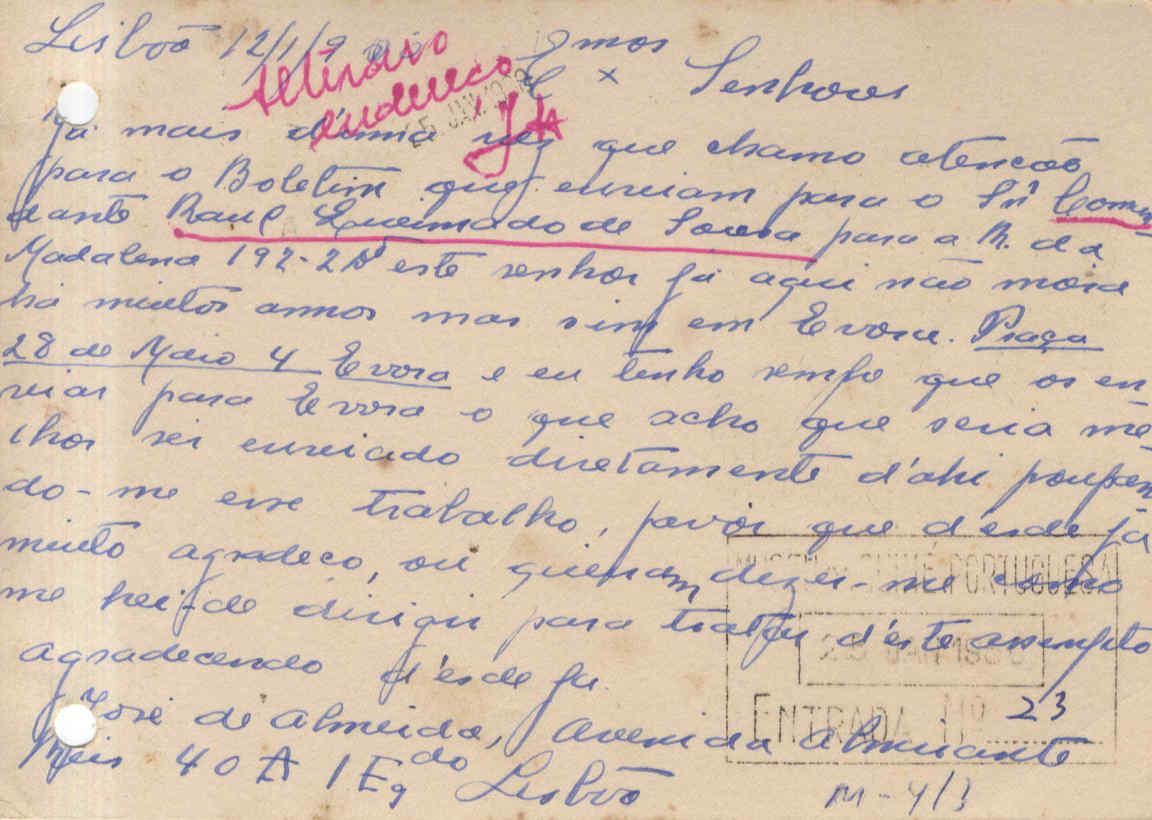 Lisbôa 12/1/9
Exmos
Senhores
Alterado
endereço
JAN. 19
Já mais d'uma vez que chamo atenção
para o Boletim que enviam para o Snr Coman
dante Raul Queimado de Sousa para a R. da
Madalena 192-2º este senhor já aqui não mora
há muitos annos mas sim em Evora. Praça
28 de Maio 4 Evora e eu tenho que os en
viar para Evora o que acho que seria me
lhor ser enviado diretamente d'ahi poupan
do-me esse trabalho, favôr que desde já
muito agradeço, ou queiram dizer-me como
me hei-de dirigir para tratar d'este assumpto
agradecendo d'esde já.
José de Almeida, Avenida Almirante
Reis 40 A 1 Eqdo Lisbôa
PORTUGUESA
JAN 19
ENTRADA Nº 23
M-4/3